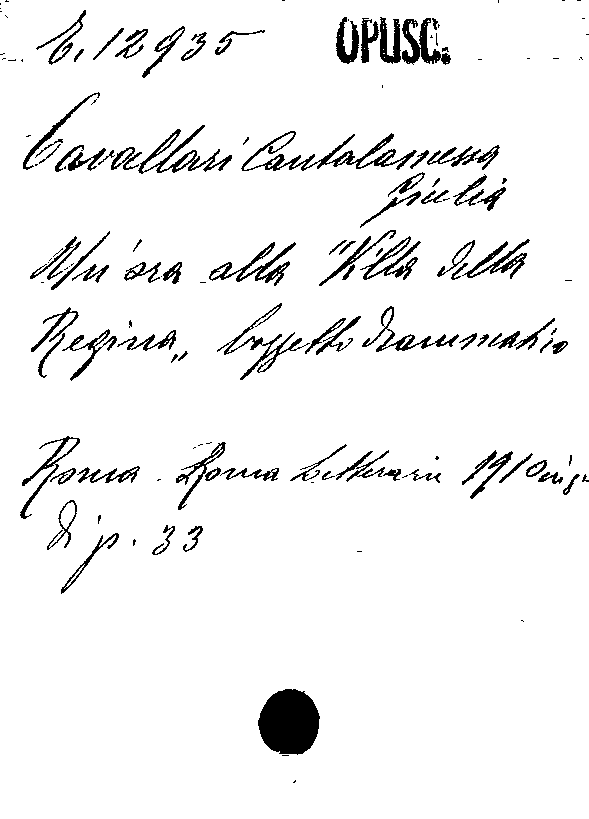 E. 12935 OPUSC.
Cavallari Cantalamessa
Giulia
Un'ora alla "Villa della
Regina„ bozzetto drammatico
Roma. Roma Letteraria 1910
di p. 33